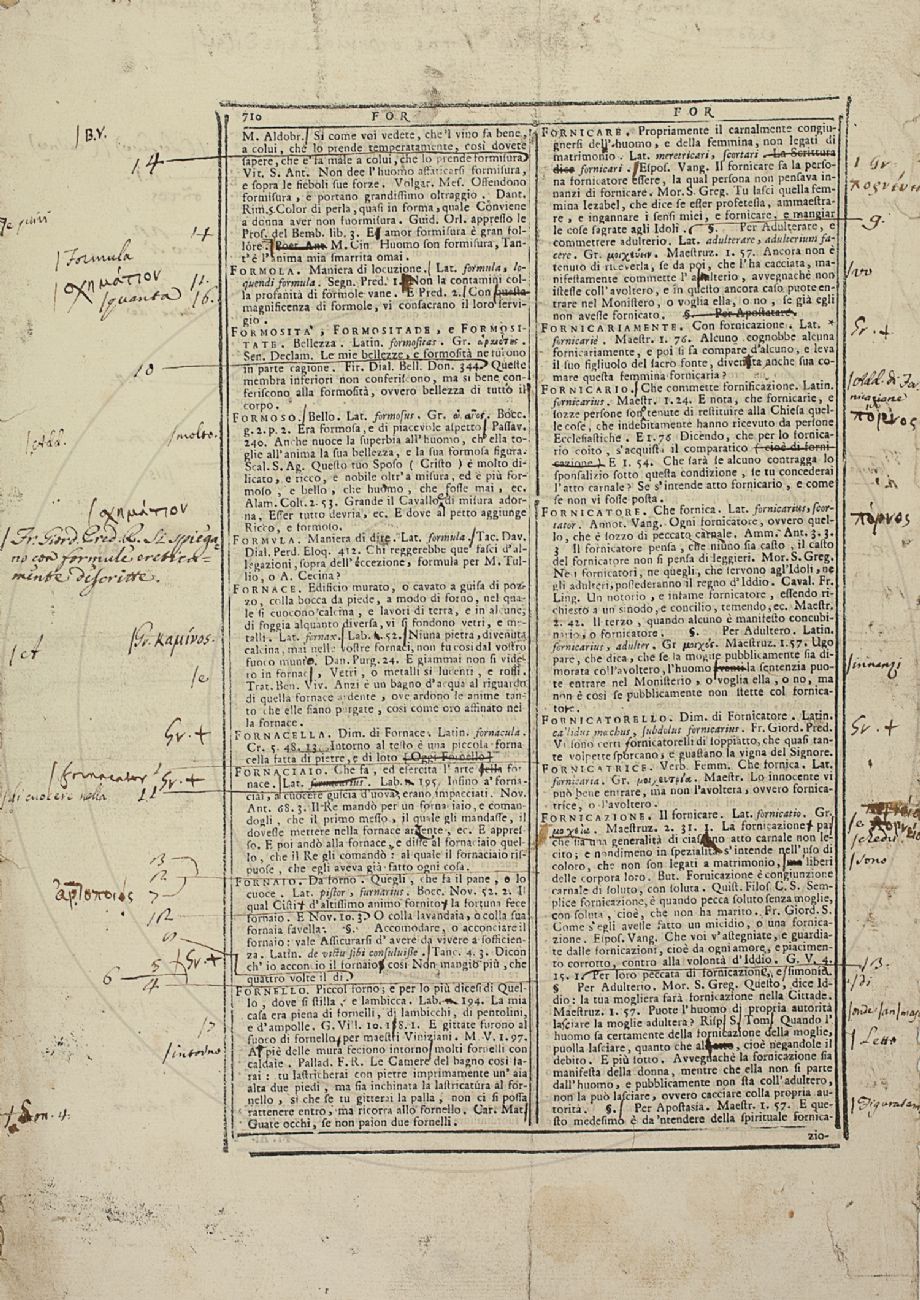 710 FOR
M. Aldobr. Si come voi vedete, che'l vino fa bene,
a colui, che lo prende temperatamente, così dovete
sapere, che e' fa male a colui, che lo prende formisura
Vit. S. Ant. Non dee l'huomo affaticarsi formisura,
e sopra le fieboli sue forze. Volgar. Mes. Offendono
formisura, e portano grandissimo oltraggio. Dant.
Rim. 5. Color di perla, quasi in forma, quale Conviene
a donna aver non fuormisura. Guid. Orl. appresso le
Pros. del Bemb. lib. 3. E amor formisura è gran fol-
lore. Poet. Ant. M. Cin Huomo son formisura, Tan-
t'è l'anima mia smarrita omai.
FORMOLA. Maniera di locuzione. Lat. formula, lo-
quendi formula. Segn. Pred. 1. Non la contamini col-
la profanità di formole vane. E Pred. 2. Con quella
magnificenza di formole, vi consacrano il loro servi-
gio.
FORMOSITÀ, FORMOSITADE, e FORMOSI-
TATE. Bellezza. Latin. formositas. Gr.
Sen. Declam. Le mie bellezze, e formosità ne furono
in parte cagione. Fir. Dial. Bell. Don. 344. Queste
membra inferiori non conferiscono, ma sì bene con-
feriscono alla formosità, ovvero bellezza di tutto il
corpo.
FORMOSO. Bello. Lat. formosus. Gr. Bocc.
g. 2. p. 2. Era formosa, e di piacevole aspetto. Passav.
240. Anche nuoce la superbia all'huomo, ch'ella to-
glie all'anima la sua bellezza, e la sua formosa figura.
Scal. S. Ag. Questo tuo Sposo (Cristo) è molto di-
licato, e ricco, e nobile oltr'a misura, ed è più for-
moso, e bello, che huomo, che fosse mai, ec.
Alam. Colt. 2. 53. Grande il Cavallo, di misura ador-
na, Esser tutto devria, ec. E dove al petto aggiunge
Ricco, e formoso.
FORMULA. Maniera di dire. Lat. formula. Tac. Dav.
Dial. Perd. Eloq. 412. Chi reggerebbe que' fasci d'al-
legazioni, sopra dell'eccezione, formula per M. Tul-
lio, o A. Cecina?
FORNACE. Edificio murato, o cavato a guisa di poz-
zo, colla bocca da piede, a modo di forno, nel qua-
le si cuocono calcina, e lavori di terra, e in alcune,
di foggia alquanto diversa, vi si fondono vetri, e me-
talli. Lat. fornax. Lab. 52. Niuna pietra, divenuta
calcina, mai nelle vostre fornaci, non fu così dal vostro
fuoco munto. Dan. Purg. 24. E giammai non si vide-
to in fornace, Vetri, o metalli sì lucenti, e rossi.
Trat. Ben. Viv. Anzi è un bagno d'acqua al riguardo
di quella fornace ardente, ove ardono le anime tan-
to che elle siano purgate, così come oro affinato nel-
la fornace.
FORNACELLA. Dim. di Fornace. Latin. fornacula.
Cr. 5. 48. 13. Intorno al testo è una piccola forna
cella fatta di pietre, e di loto (Oggi Fornello)
FORNACIAIO. Che fa, ed esercita l'arte della for-
nace. Lat. Lab. 195. Infino a' forna-
ciai, a cuocere guscia d'uova, erano impacciati. Nov.
Ant. 68. 3. Il Re mandò per un fornaciaio, e coman-
dogli, che il primo messo, il quale gli mandasse, il
dovesse mettere nella fornace ardente, ec. E appres-
so. E poi andò alla fornace, e disse al fornaciaio quel-
lo, che il Re gli comandò: al quale il fornaciaio ris-
puose, che egli aveva già fatto ogni cosa.
FORNAIO. Da forno. Quegli, che fa il pane, o lo
cuoce. Lat. pistor, furnarius. Bocc. Nov. 52. 2. Il
qual Cisti d'altissimo animo fornito la fortuna fece
fornaio. E Nov. 10. 3. O colla lavandaia, o colla sua
fornaia favella. §. Accomodare, o acconciare il
fornaio: vale Assicurarsi d'avere da vivere a sofficien-
za. Latin. de victu sibi consuluisse. Tanc. 4. 3. Dicon
ch'io acconcio il fornaio, così Non mangio più, che
quattro volte il dì.
FORNELLO. Piccol forno; e per lo più dicesi di Quel-
lo, dove si stilla, e lambicca. Lab. 194. La mia
casa era piena di fornelli, di lambicchi, di pentolini,
e d'ampolle. G. Vill. 10. 158. 1. E gittate furono al
fuoco di fornello, per maestri Viniziani. M. V. 1. 97.
A' piè delle mura feciono intorno molti fornelli con
caldaie. Pallad. F. R. Le Camere del bagno così fa-
rai: tu lastricherai con pietre imprimamente un'aia
alta due piedi, ma sia inchinata la lastricatura al for-
nello, sì che se tu gitterai la palla, non ci si possa
rattenere entro, ma ricorra allo fornello. Car. Mat.
Guate occhi, se non paion due fornelli.
FOR
FORNICARE. Propriamente il carnalmente congiu-
gnersi dell'huomo, e della femmina, non legati di
matrimonio. Lat. meretricari, scortari. La Scrittura
dice fornicari. Espos. Vang. Il fornicare fa la perso-
na fornicatore essere, la qual persona non pensava in-
nanzi di fornicare. Mor. S. Greg. Tu lasci quella fem-
mina Iezabel, che dice se esser profetessa, ammaestra-
re, e ingannare i servi miei, e fornicare, e mangiar
le cose sagrate agli Idoli. §. Per Adulterare, e
commettere adulterio. Lat. adulterare, adulterium fa-
cere. Gr. Maestruz. 1. 57. Ancora non è
tenuto di riceverla, se da poi, che l'ha cacciata, ma-
nifestamente commette l'adulterio, avvegnachè non
istesse coll'avoltero, e in questo ancora caso puote en-
trare nel Monistero, o voglia ella, o no, se già egli
non avesse fornicato. §. Per Apostatare.
FORNICARIAMENTE. Con fornicazione. Lat. *
fornicariè. Maestr. 1. 76. Alcuno cognobbe alcuna
fornicariamente, e poi si fa compare d'alcuno, e leva
il suo figliuolo del sacro fonte, diventa anche sua co-
mare questa femmina fornicaria?
FORNICARIO. Che commette fornificazione. Latin.
fornicarius. Maestr. 1. 24. E nota, che fornicarie, e
sozze persone son tenute di restituire alla Chiesa quel-
le cose, che indebitamente hanno ricevuto da persone
Ecclesiastiche. E 1. 76 Dicendo, che per lo fornica-
rio coito, s'acquista il comparatico (cioè di forni-
cazione) E 1. 54. Che farà se alcuno contragga lo
sponsalizio sotto questa condizione, se tu concederai
l'atto carnale? Se s'intende atto fornicario, e come
se non vi fosse posta.
FORNICATORE. Che fornica. Lat. fornicarius, scor-
tator. Annot. Vang. Ogni fornicatore, ovvero quel-
lo, che è sozzo di peccato carnale. Amm. Ant. 3. 3.
3 Il fornicatore pensa, che niuno sia casto, il casto
del fornicatore non si pensa di leggieri. Mor. S. Greg.
Nè i fornicatori, ne quegli, che servono agl'Idoli, ne
gli adulteri, possederanno il regno d'Iddio. Caval. Fr.
Ling. Un notorio, e infame fornicatore, essendo ri-
chiesto a un sinodo, e concilio, temendo, ec. Maestr.
2. 42. Il terzo, quando alcuno è manifesto concubi-
nario, o fornicatore. §. Per Adultero. Latin.
fornicarius, adulter. Gr μοιχός. Maestruz. 1. 57. Ugo
pare, che dica, che se la moglie pubblicamente sia di-
morata coll'avoltero, l'huomo la sentenzia puo-
te entrare nel Monisterio, o voglia ella, o no, ma
non è così se pubblicamente non stette col fornica-
tore.
FORNICATORELLO. Dim. di Fornicatore. Latin.
callidus moechus, subdolus fornicarius. Fr. Giord. Pred.
Vi sono certi fornicatorelli di soppiatto, che quasi tan-
te volpette sporcano, e guastano la vigna del Signore.
FORNICATRICE. Verb. Femm. Che fornica. Lat.
fornicaria. Gr. Maestr. Lo innocente vi
può bene entrare, ma non l'avoltera, ovvero fornica-
trice, o l'avoltero.
FORNICAZIONE. Il fornicare. Lat. fornicatio. Gr.
μοιχεία. Maestruz. 2. 31. 1. La fornicazione par
che sia una generalità di ciascuno atto carnale non le-
cito; e nondimeno in spezialità s'intende nell'uso di
coloro, che non son legati a matrimonio, liberi
delle corpora loro. But. Fornicazione è congiunzione
carnale di soluto, con soluta. Quist. Filos C. S. Sem-
plice fornicazione, è quando pecca soluto senza moglie,
con soluta, cioè, che non ha marito. Fr. Giord. S.
Come s'egli avesse fatto un micidio, o una fornica-
zione. Espos. Vang. Che voi v'astegniate, e guardia-
te dalle fornicazioni, cioè da ogni amore, e piacimen-
to corrotto, contro alla volontà d'Iddio. G. V. 4.
15. 1. Per loro peccata di fornicazione, e simonia.
§ Per Adulterio. Mor. S. Greg. Questo, dice Id-
dio: la tua mogliera farà fornicazione nella Cittade.
Maestruz. 1. 57. Puote l'huomo di propria autorità
lasciare la moglie adultera? Risp. S. Tom. Quando l'
huomo fa certamente della fornicazione della moglie,
puolla lasciare, quanto che al letto, cioè negandole il
debito. E più sotto. Avvegnachè la fornicazione sia
manifesta della donna, mentre che ella non si parte
dall'huomo, e pubblicamente non sta coll'adultero,
non la può lasciare, ovvero cacciare colla propria au-
torità. §. Per Apostasìa. Maestr. 1. 57. E que-
sto medesimo è da 'ntendere della spirituale fornica-
zio-
B.V.
14
14
Formula
σχημάτιον
11.
quanta 16.
10
Add.
molto.
σχημάτιον
Fr. Giord. Pred. R. Si spiega-
no con formule eretica-
mente discritte.
Gr. καμίνος.
et
e
Gr. +
fornacator
Gr. +
di cuocere nella
11
13
12
7
12
ἀρτοποιός
9
5 Gr. +
6
4
7
intorno
+ Son. 4.
1 Gr.
πορνεύειν
9.
vo
Gr. +
Add. di For-
nicazione
πόρνος
πόρνος
innanzi
Gr. +
e
credito
sono
13.
di
Letto
Figuratam